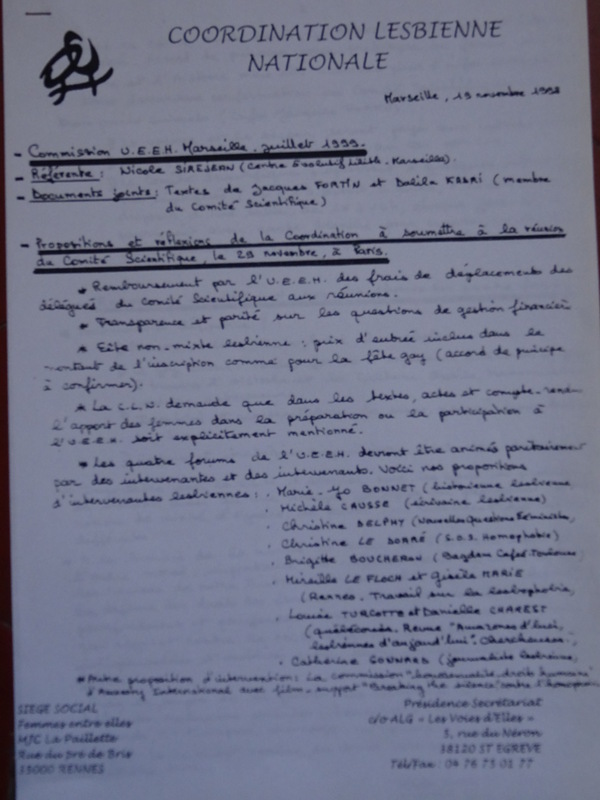 COORDINATION LESBIENNE
NATIONALE
Marseille, 19 novembre 1998
- Commission U.E.E.H. Marseille. juillet 1999.
- Référente : Nicole SIREJEAN (Centre Evolutif Lilith. Marseille).
- Documents joints : Textes de Jacques FORTIN et Dalila KADRI (membre
du Comité Scientifique)
- Propositions et réflexions de la Coordination à soumettre à la réunion
du Comité Scientifique, le 29 novembre, à Paris.
* Remboursement par l'U.E.E.H. des frais de déplacements des
délégués du Comité Scientifique aux réunions.
* Transparence et parité sur les questions de gestion financière
* Fête non-mixte lesbienne : prix d'entrée inclus dans le
montant de l'inscription comme pour la fête gay (accord de principe
à confirmer).
* La C.L.N. demande que dans les textes, actes et compte-rendu
l'apport des femmes dans la préparation ou la participation à
l'U.E.E.H. soit explicitement mentionné.
* Les quatre forums de l'U.E.E.H. devront être animés paritairement
par des intervenantes et des intervenants. Voici nos propositions
d'intervenantes lesbiennes : . Marie-Jo BONNET (historienne lesbienne
. Michèle CAUSSE (écrivaine lesbienne)
. Christine DELPHY (Nouvelles Questions Féministes)
. Christine LE DORRÉ (S.O.S. Homophobie)
. Brigitte BOUCHERON (Bagdam Cafée. Toulouse)
. Mireille LE FLOCH et Gisèle MARIE
(Rennes. Travail sur la lesbophobie)
. Louise TURCOTTE et Danielle CHAREST
(québécoises. Revue "Amazones d'hier,
lesbiennes d'aujourd'hui". Chercheuses)
. Catherine GONNARD (journaliste lesbienne)
* Autre proposition d'intervention : La commission "homosexualité. droits humains"
d'Amnesty International avec film. support "Breaking the silence" contre l'homophobie
SIEGE SOCIAL
Femmes entre elles
MJC La Paillette
Rue du Pré de Bris
35000 RENNES
Présidence Secrétariat
c/o ALG « Les Voies d'Elles »
5, rue du Néron
38120 ST EGREVE
Tél/Fax : 04 76 75 01 77